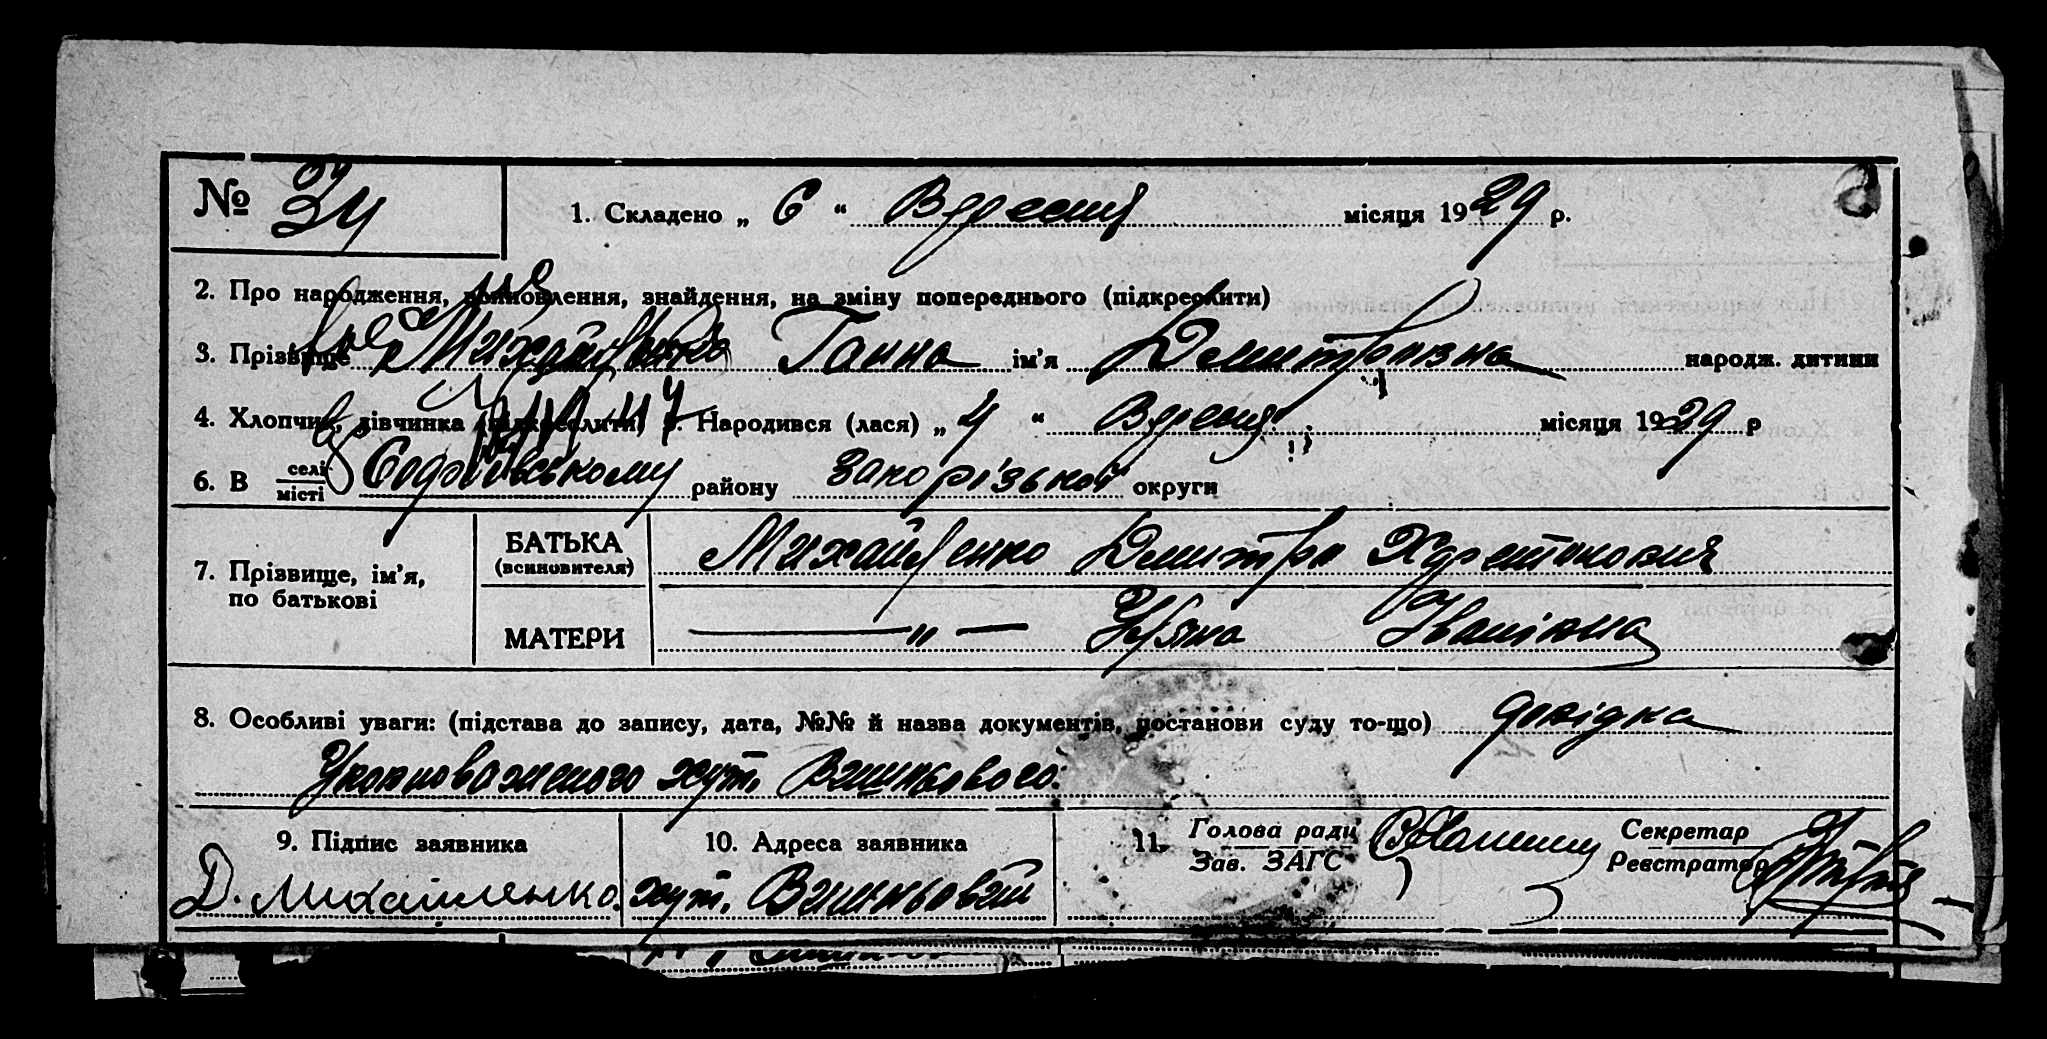 № 34
1. Складено „ 6 “ Вересня місяця 1929 р.
2. Про народження, всиновлення, знайдення, на зміну попереднього (підкреслити)
3. Прізвище Михайленко Ганна ім'я Дмитрівна народж. дитини
4. Хлопчик, дівчинка (підкреслити) 5. Народився (лася) „ 4 “ Вересня місяця 1929 р
6. В селі місті району Запорізької округи
7. Прізвище, ім'я, по батькові
БАТЬКА (всиновителя) Михайленко Дмитро Харетинович
МАТЕРИ — „ — Уляна Іванівна
8. Особливі уваги: (підстава до запису, дата, №№ й назва документів, постанови суду то-що) довідка
Уповноваженого хут. Вишньового.
9. Підпис заявника 10. Адреса заявника 11. Голова ради Секретар
Зав. ЗАГС Реєстратор
Д. Михайленко. хут. Вишньовий